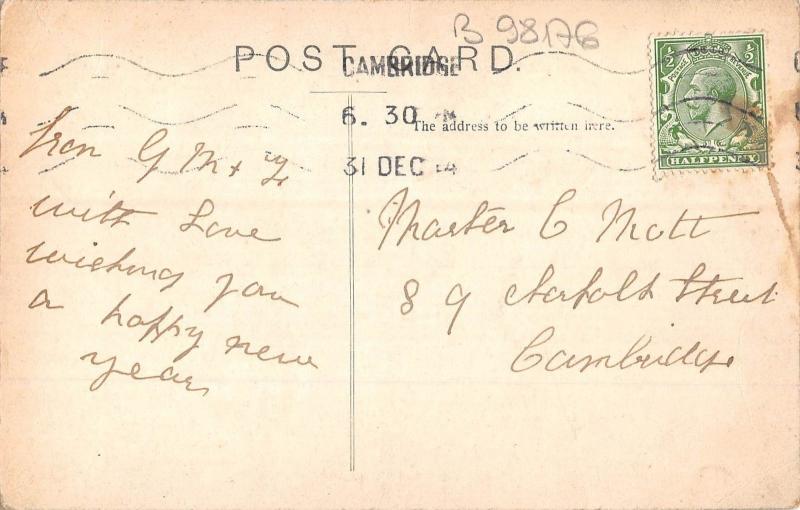 B 98176
POST CARD.
CAMBRIDGE
6. 30 PM
31 DEC 14
The address to be written here.
½ ½
POSTAGE REVENUE
HALFPENNY
From G M +
with Love
wishing you
a happy new
year
Master C Mott
89 Norfolk Street
Cambridge